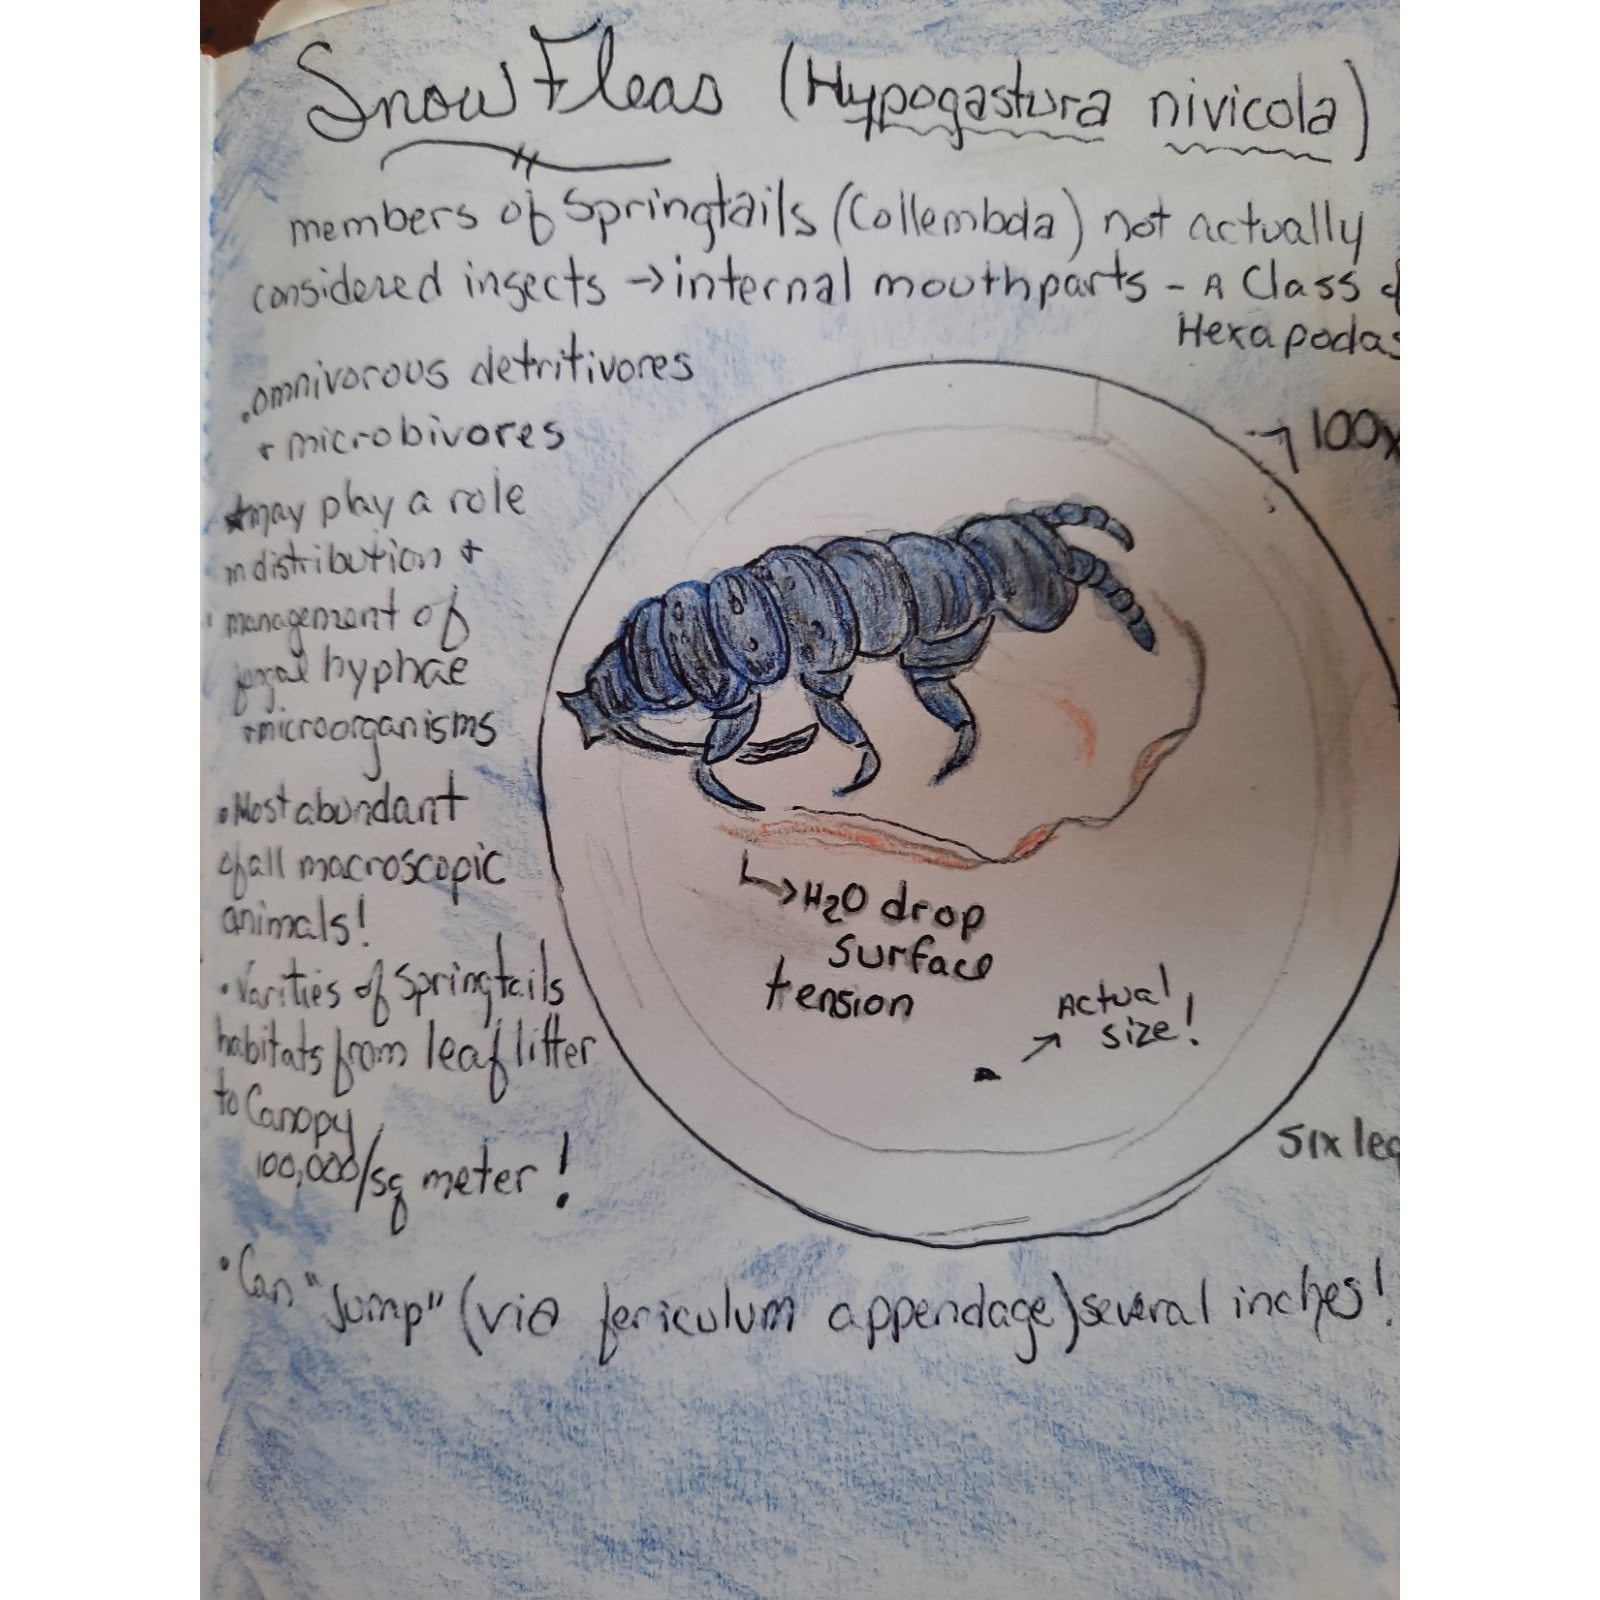 Snow Fleas (Hypogastura nivicola)
members of Springtails (Collembola) not actually
considered insects → internal mouthparts - A Class
Hexapodas
• omnivorous detritivores
+ microbivores
→ 100x
★may play a role
in distribution +
management of
fungal hyphae
+microorganisms
• Most abundant
of all macroscopic
animals!
↳ H2O drop
surface
tension
• Varities of Springtails
habitats from leaf litter
to Canopy
100,000/sq meter!
Actual
size!
Six leg
• Can "Jump" (via fericulum appendage) several inches!